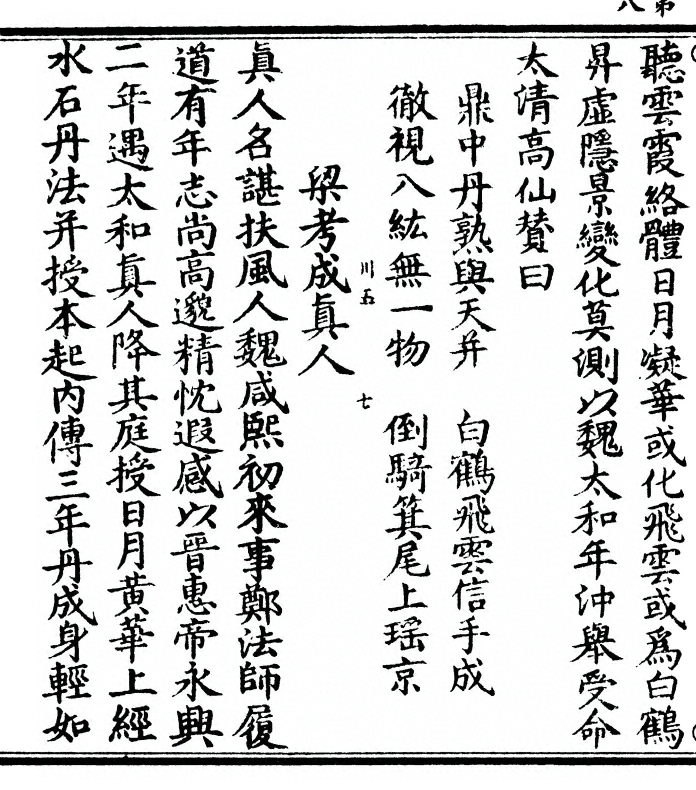 聽雲霞絡體日月凝華或化飛雲或爲白鶴
昇虛隱景變化莫測以魏太和年沖舉受命
太清高仙贊曰
鼎中丹熟與天并　白鶴飛雲信手成
徹視八紘無一物　倒騎箕尾上瑤京
川五　七
梁考成眞人
眞人名諶扶風人魏咸熙初來事鄭法師履
道有年志尚高邈精忱遐感以晉惠帝永興
二年遇太和眞人降其庭授日月黃華上經
水石丹法并授本起內傳三年丹成身輕如